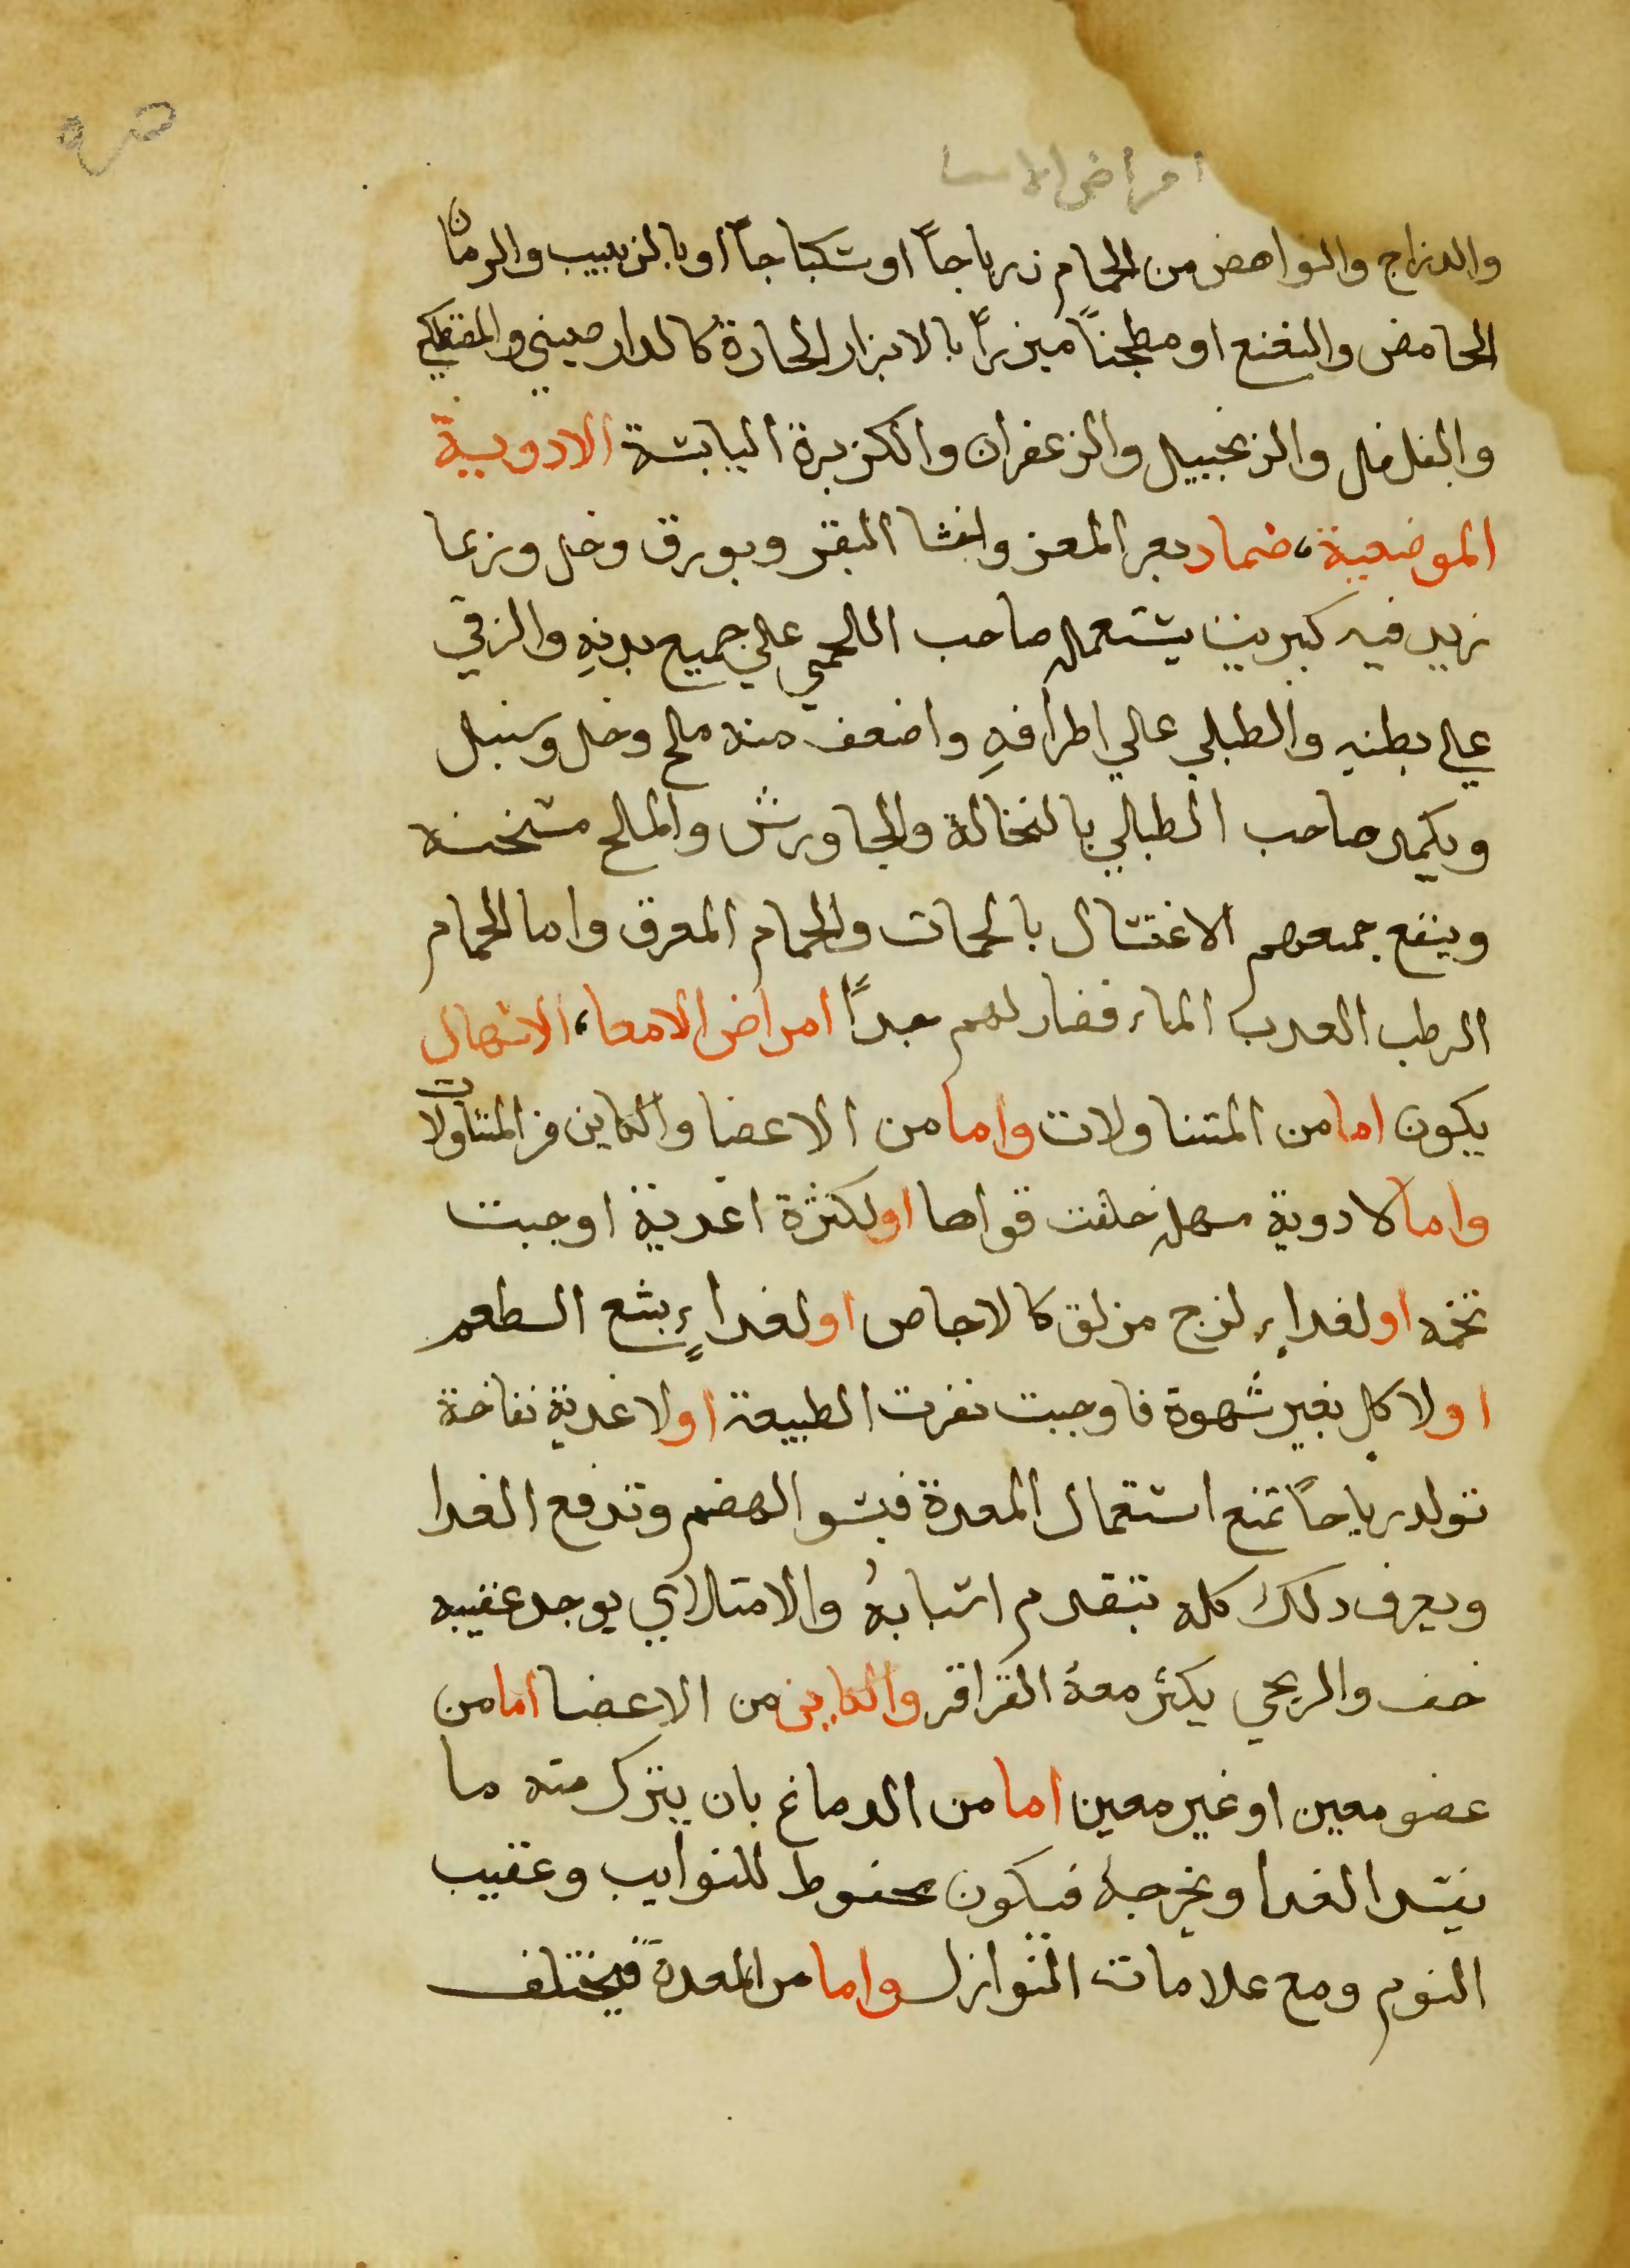 امراض الامعا
والدراج والنواهض من الحمام زرباجاً او سكباجاً او بالزبيب والرمان
الحامض والنعنع او مطجناً مبزراً بالابزار الحارة كالدارصيني والمصطكي
والفلفل والزنجبيل والزعفران والكزبرة اليابسة الادوية
الموضعية، ضماد بعر المعز واخثا البقر وبورق وخل وربما
زيد فيه كبريت يستعمله صاحب اللحمي علي جميع بدنهِ والزقي
علي بطنهِ والطبلي علي اطرافهِ واضعف منه ملح وخل وسنبل
ويكمد صاحب الطبلي بالنخالة والجاورش والملح مسخنه
وينفع جميعهم الاغتسال بالحمات والحمام المعرق واما الحمام
الرطب العدب الماء فضار لهم جداً امراض الامعا، الاسهال
يكون اما من المتناولات واما من الاعضا والكاين من المتناولات
واما لادوية مسهله خلفت قواها او لكثرة اغدية اوجبت
تخمه او لغداءٍ لزج مزلق كالاجاص او لغداءٍ بشع الطعم
او لاكل بغير شهوة فاوجبت نفرت الطبيعة او لاغدية نفاخة
تولد رياحاً تمنع اشتمال المعدة فيسو الهضم وتدفع الغدا
ويعرف دلك كله بتقدم اسبابهُ والامتلاي يوجد عقيبه
خف والريحي يكثر معهُ القراقر والكاين من الاعضا اما من
عضو معين او غير معين اما من الدماغ بان ينزل منه ما
يفسد الغدا ويخرجهُ فيكون محفوظ للنوايب وعقيب
النوم ومع علامات النوازل واما من المعدة فيختلف